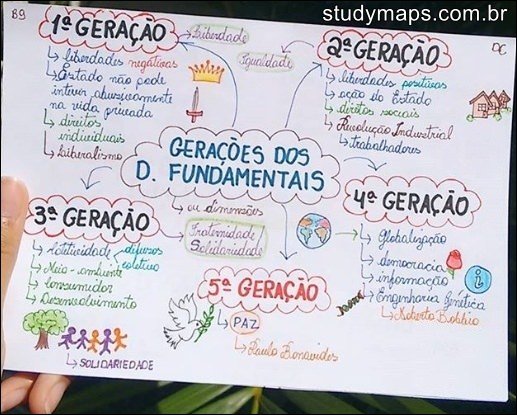 studymaps.com.br
89
DC
1ª GERAÇÃO
↳ liberdades negativas
↳ Estado não pode
intevir abusivamente
na vida privada
↳ direitos
individuais
↳ Liberalismo
Liberdade
Igualdade
2ª GERAÇÃO
↳ liberdades positivas
↳ ação do Estado
↳ direitos sociais
↳ Revolução Industrial
↳ trabalhadores
GERAÇÕES DOS
D. FUNDAMENTAIS
↳ ou dimensões
Fraternidade
Solidariedade
3ª GERAÇÃO
↳ Coletividade difusos
coletivo
↳ Meio-ambiente
↳ Consumidor
↳ Desenvolvimento
↳ SOLIDARIEDADE
4ª GERAÇÃO
↳ Globalização
↳ democracia
↳ informação
i
↳ Engenharia Genética
↳ Norberto Bobbio
5ª GERAÇÃO
↳ PAZ
↳ Paulo Bonavides